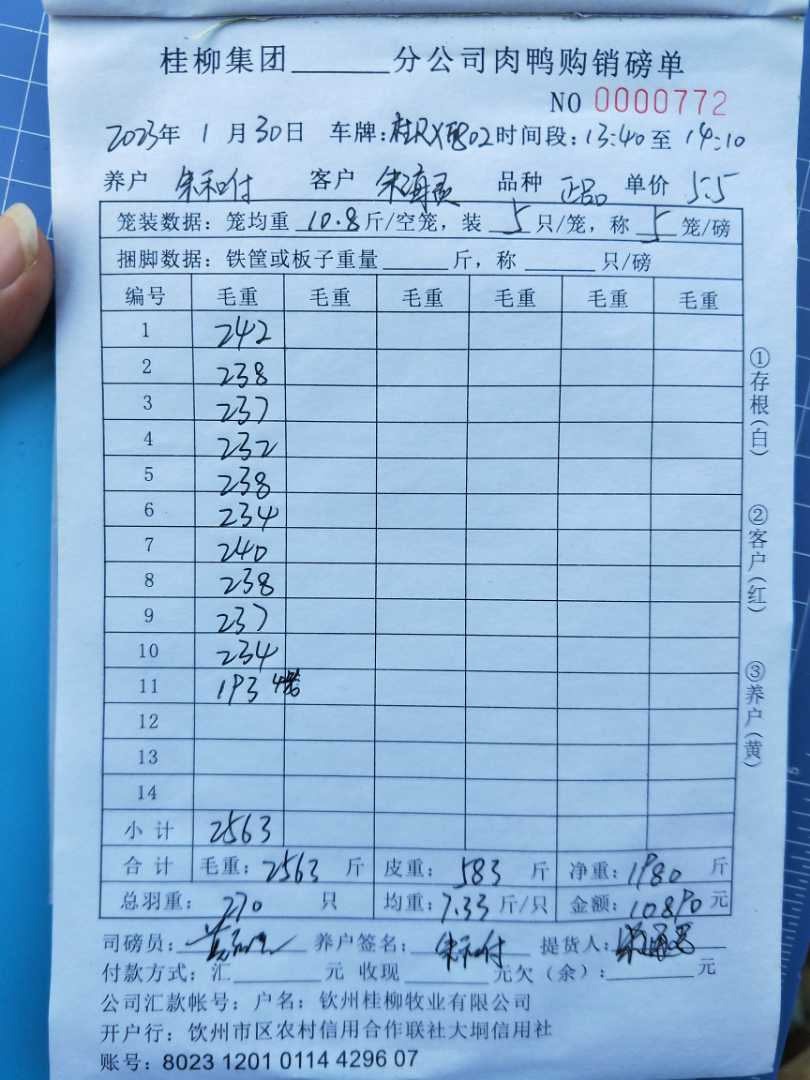 桂柳集团______分公司肉鸭购销磅单
NO 0000772
2023年 1 月 30日 车牌: 桂R 802 时间段: 13:40 至 14:10
养户 朱和付 客户 品种 正品 单价 5.5
笼装数据: 笼均重 10.8 斤/空笼, 装 5 只/笼, 称 5 笼/磅
捆脚数据: 铁筐或板子重量______斤, 称______只/磅
编号 毛重 毛重 毛重 毛重 毛重 毛重
1 242
2 238
3 237
4 232
5 238
6 234
7 240
8 238
9 237
10 234
11 193 4笼
12
13
14
小 计 2563
合 计 毛重: 2563 斤 皮重: 583 斤 净重: 1980 斤
总羽重: 270 只 均重: 7.33 斤/只 金额: 10890 元
司磅员: 养户签名: 朱和付 提货人:
付款方式: 汇______元 收现______元欠(余): ______元
公司汇款帐号: 户名: 钦州桂柳牧业有限公司
开户行: 钦州市区农村信用合作联社大垌信用社
账号: 8023 1201 0114 4296 07
①存根(白)
②客户(红)
③养户(黄)